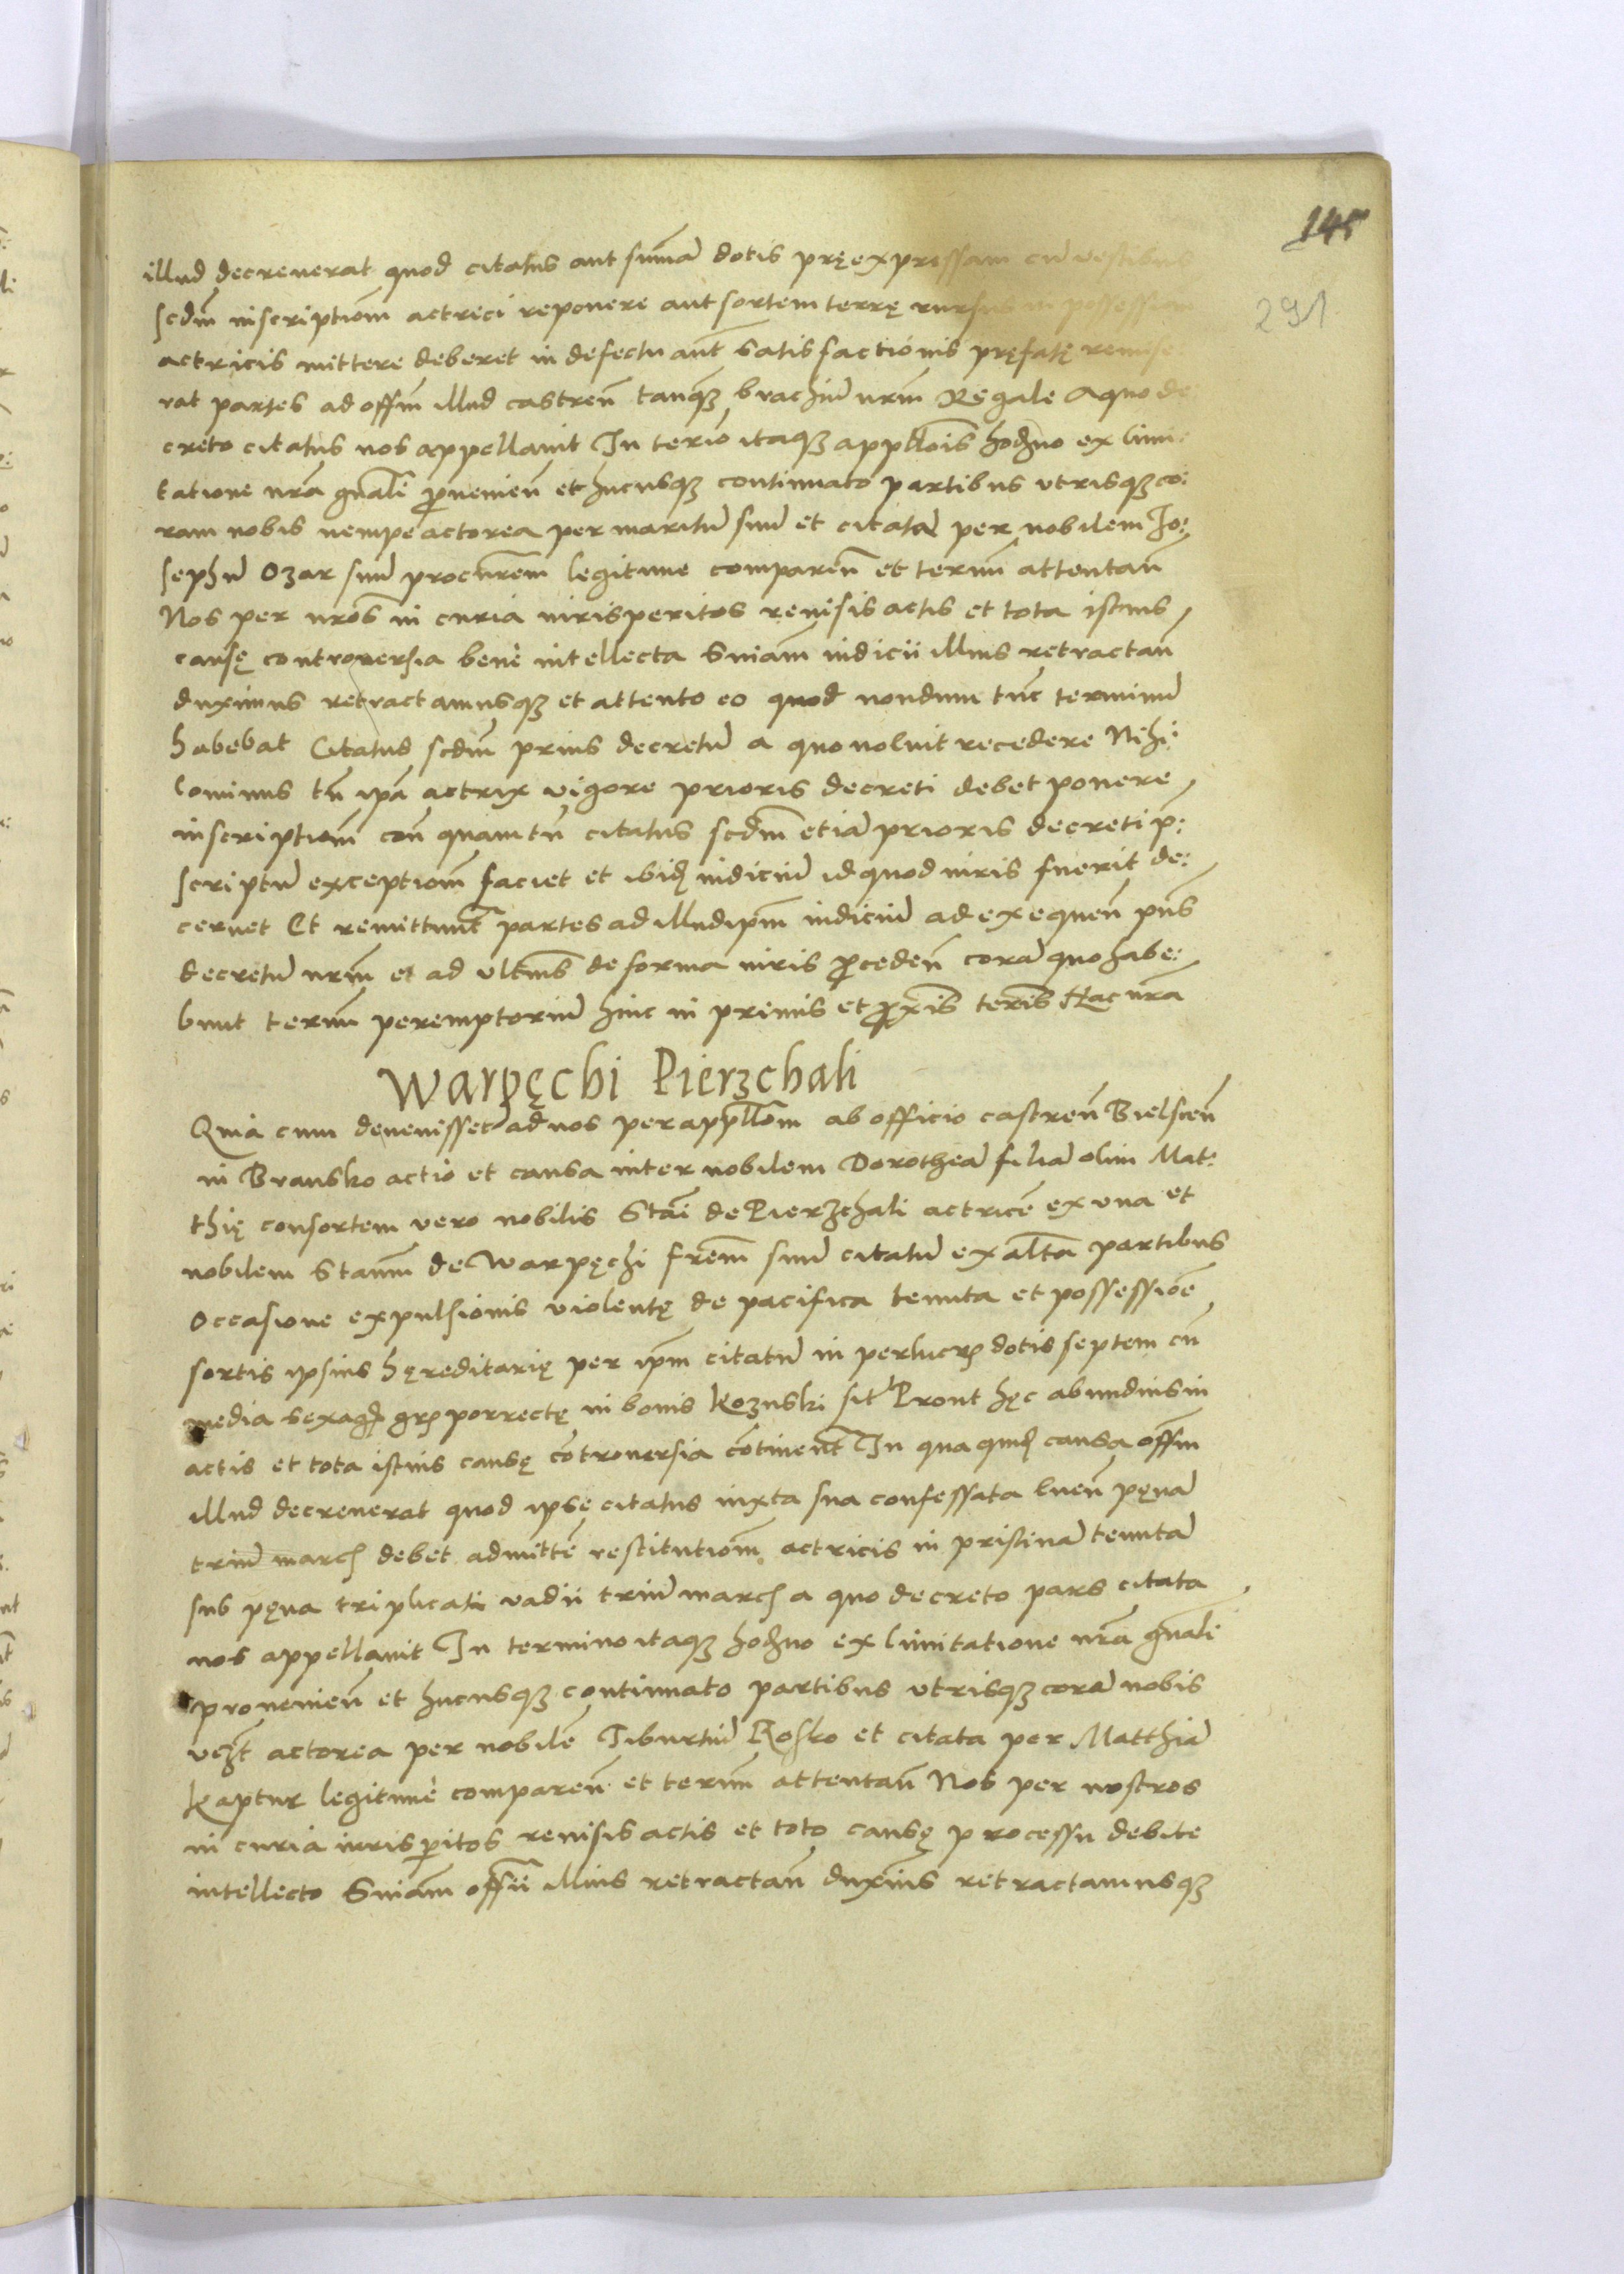 145
291
illud decreverat quod citatus aut sum̄ā dotis pręexpressam cū vestibus
scdm̄ inscriptiom̄ actrici reponere aut sortem terrę rursus in possession
actricis mittere deberet in defectu aūt satisfactionis pręfatę remise
rat partes ad offm̄ illud castreñ tanq̄ȝ brachiū nrm̄ Regale A quo de
creto citatus nos appellavit In terīo itaqȝ appllōis hodiēno ex limi:
tatione nrā gnāli ꝓvenieñ et hucusqȝ continuato partibus utrisqȝ co:
ram nobis nempe actorea per maritū suū et citata per nobilem Jo:
sephū Ozar suū procurēm legitime compareñ et termī attentañ
Nos per nrōs in curia iurisperitos revisis actis et tota istius
causę controversia bene intellecta Sniam̄ iudicii illius retractañ
duximus retractamusqȝ et attento eo quod nondum tūc terminū
habebat Citatus scdm̄ prius decretū a quo noluit recedere Nihi:
lominus tñ ipā actrix vigore prioris decreti debet ponere
inscriptiom̄ coñ quam tñ citatus scdm̄ etiā prioris decreti p:
scriptū exceptiom̄ faciet et ibid iudiciū id quod iuris fuerit de:
cernet Et remittunt partes ad illud ipm̄ iudiciū ad exequeñ pñs
decretū nrm̄ et ad ulteri͞us de forma iuris ꝓcedeñ corā quo habe:
bunt termī peremptoriū hinc in primis et ꝓxīs terīs Hac nrā
Warpęchi Pierzchali
Quia cum devenisset ad nos per appllōm ab officio castreñ Bielsceñ
in Bransko actio et causa inter nobilem Dorotheā filiā olim Mat:
thię consortem vero nobilis Stāi de Pierzchali actricē ex una et
nobilem Stanm̄ de Warpęchi frēm suū citatū ex altā partibus
occasione expulsionis violentę de pacifica tenuta et possessiōe
sortis ipsius hęreditarię per ipm̄ citatū in perlucrꝭ dotis septem cū
media sexagꝭ grꝭ porrectę in bonis Kozuski sit Prout hęc abundius in
actis et tota istius causę cōtroversia cōtinent In qua quidꝭ causa offm̄
illud decreverat quod ipse citatus iuxta sua confessata lueñ pęnā
triū marcꝭ debet admittē restitutiom̄ actricis in pristinā tenutā
sub pęna triplicati vadii triū marcꝭ a quo decreto pars citata
nos appellavit In termino itaqȝ hodiēno ex limitatione nrā gnāli
provenieñ et hucusqȝ continuato partibus utrisqȝ corā nobis
vcꝫt actorea per nobilē Tiburtiū Rosko et citata per Matthiā
Kaptur legitime compareñ et termī attentañ Nos per nostros
in curia iurisꝑitos revisis actis et toto causę processu debite
intellecto Sniam̄ offīi illius retractañ duxim̄s retractamusqȝ